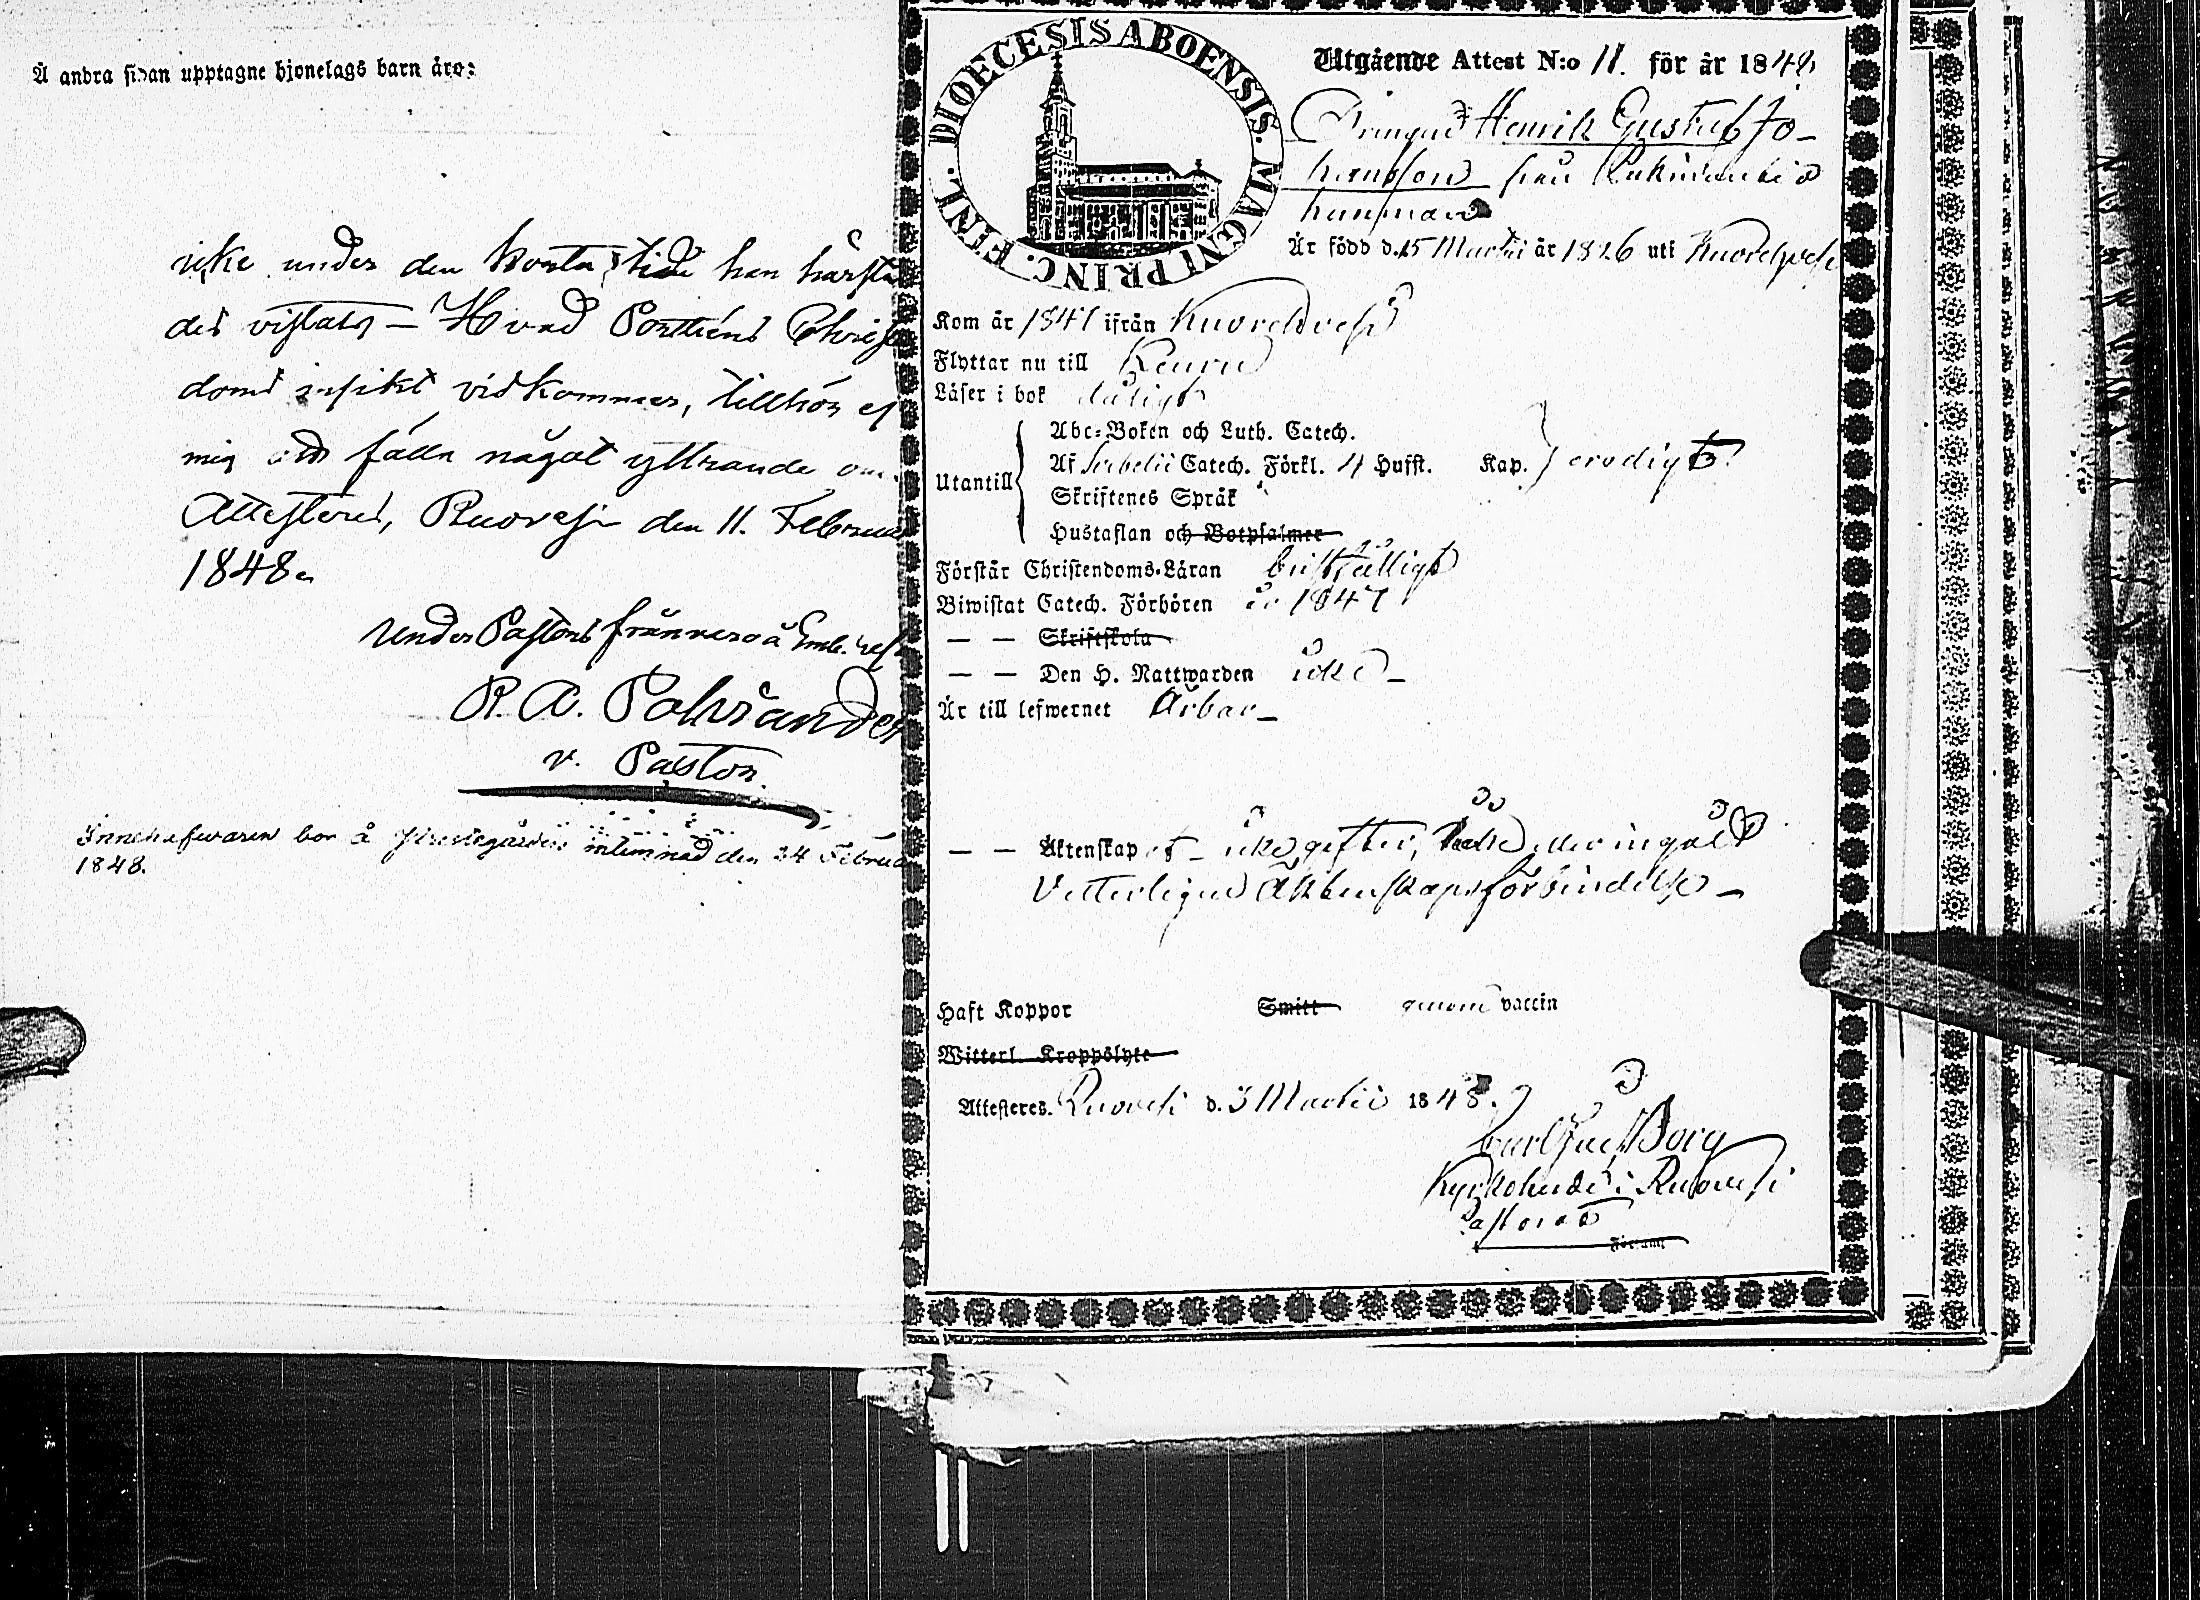 Å andra sidan upptagne hjonelags barn äro:
icke under den korta tide han härstä
des vistats — Hvad Christ
doms insikt vidkommer, tillhör ej
mig att fälla något yttrande om
Attesteras, Ruovesi den 11. Februa
1848.
Under Pastors frånvaro å Emb.
v. Pastor
Innehafwaren bor å Prestegården inlemnad den 24 Februa
1848.
DIOECESIS ABOENSIS. MAGNI PRINC. FINL.
Utgående Attest N:o 11. för år 1848
Henrik Gustaf Jo-
hansson från
Är född d. 15 Martii år 1826 uti
Kom år 1847 ifrån
Flyttar nu till
Läser i bok dåligt
Utantill
Abc-Boken och Luth. Catech.
Af Catech. Förkl. 4 Hufst. Kap.
Skriftenes Språk
Hustaflan och Botpsalmer
Förstår Christendoms-Läran bristfälligt
Biwistat Catech. Förhören år 1847
— — Skriftskola
— — Den H. Nattwarden icke —
Är till lefwernet Ärbar —
— — Äktenskap icke gifter, eller ingått
Vetterligen Äktenskapsförbindelse —
Haft Koppor Smitt genom vaccin
Witterl. Kroppslyte
Attesteres. Ruovesi d. 3 Martii 1848.
Carl Gust Borg
Kyrkoherde i Ruovesi
Pastorat
Församl.